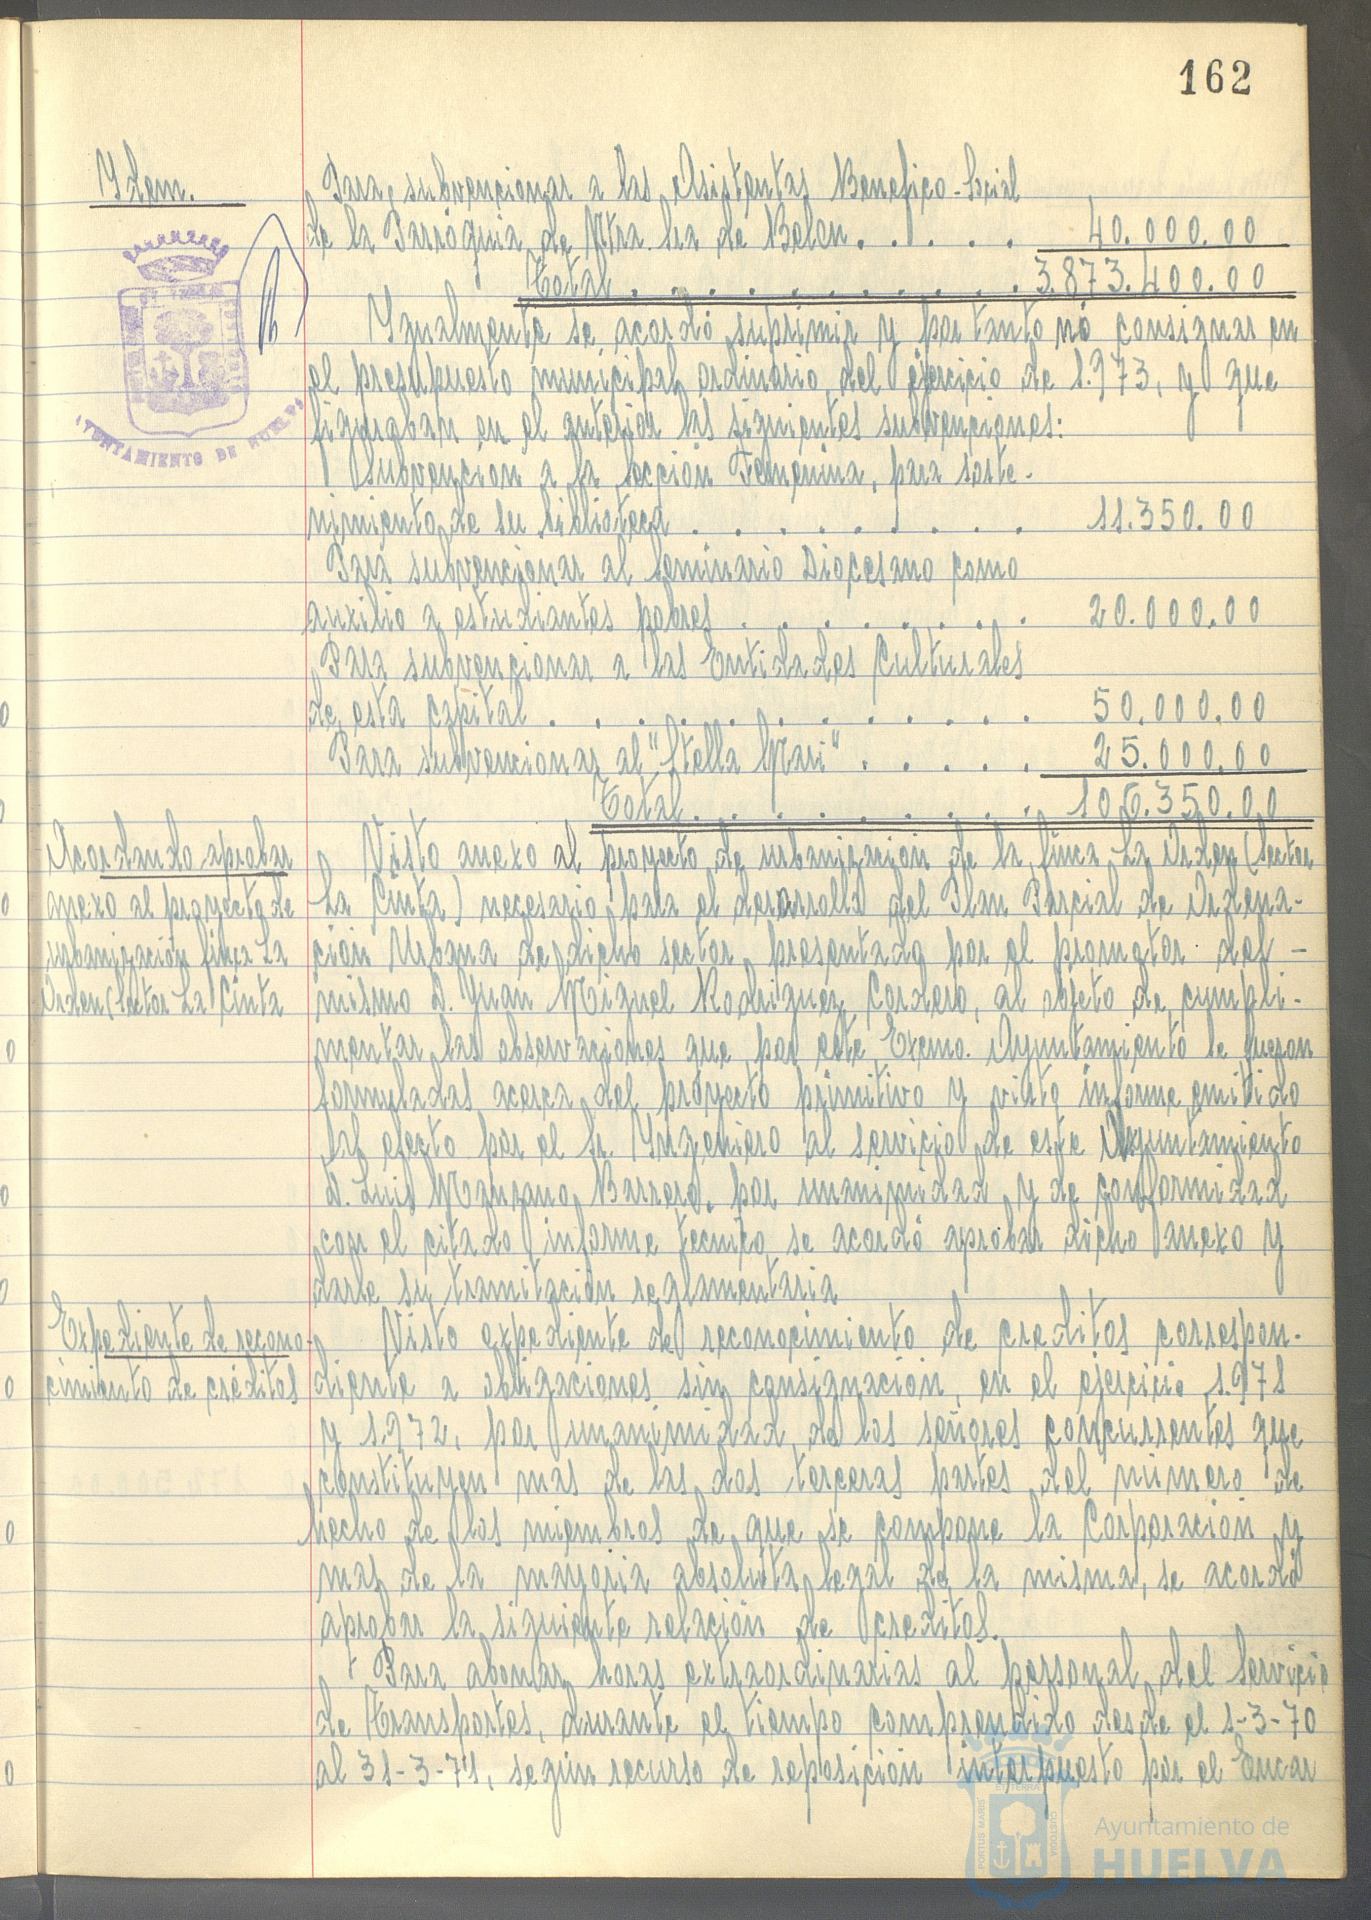 162
Ydem.
Para subvencionar a las Asistentas Benefico-Social
de la Parroquia de Ntra. Sra de Belen . . . . . 40.000.00
Total . . . . . . . . . . 3.873.400.00
AYUNTAMIENTO DE HUELVA
Ygualmente se acordó suprimir y por tanto no consignar en
el presupuesto municipal ordinario del ejercicio de 1.973, y que
figuraban en el anterior las siguientes subvenciones:
Subvencion a la Sección Femenina, para soste-
nimiento de su biblioteca . . . . . . . . 11.350.00
Para subvencionar al Seminario Diocesano como
auxilio a estudiantes pobres . . . . . . . 20.000.00
Para subvencionar a las Entidades Culturales
de esta capital . . . . . . . . . . . 50.000.00
Para subvencionar al "Stella Mari" . . . . . 25.000.00
Total . . . . . . . . . 106.350.00
Acordando aprobar
anexo al proyecto de
urbanización finca La
Orden (Sector La Cinta
Visto anexo al proyecto de urbanización de la finca La Orden (Sector
La Cinta) necesario para el desarrollo del Plan Parcial de Ordena-
ción Urbana de dicho sector, presentado por el promotor del -
mismo D. Juan Miguel Rodriguez Cordero, al objeto de cumpli-
mentar las observaciones que por este Excmo. Ayuntamiento le fueron
formuladas acerca del proyecto primitivo y visto informe emitido
al efecto por el Sr. Yngeniero al servicio de este Ayuntamiento
D. Luis Manzano Barrero, por unanimidad y de conformidad
con el citado informe tecnico, se acordó aprobar dicho anexo y
darle su tramitación reglamentaria
Expediente de recono-
cimiento de créditos
Visto expediente de reconocimiento de creditos correspon-
diente a obligaciones sin consignacion, en el ejercicio 1.971
y 1.972, por unanimidad, de los señores concurrentes que
constituyen mas de las dos terceras partes del número de
hecho de los miembros de que se compone la Corporación y
mas de la mayoria absoluta legal de la misma, se acordó
aprobar la siguiente relación de creditos.
Para abonar horas extraordinarias al personal del Servicio
de Transportes, durante el tiempo comprendido desde el 1-3-70
al 31-3-71, según recurso de reposición interpuesto por el Encar
PORTUS MARIS ET TERRAE CUSTODIA
Ayuntamiento de
HUELVA